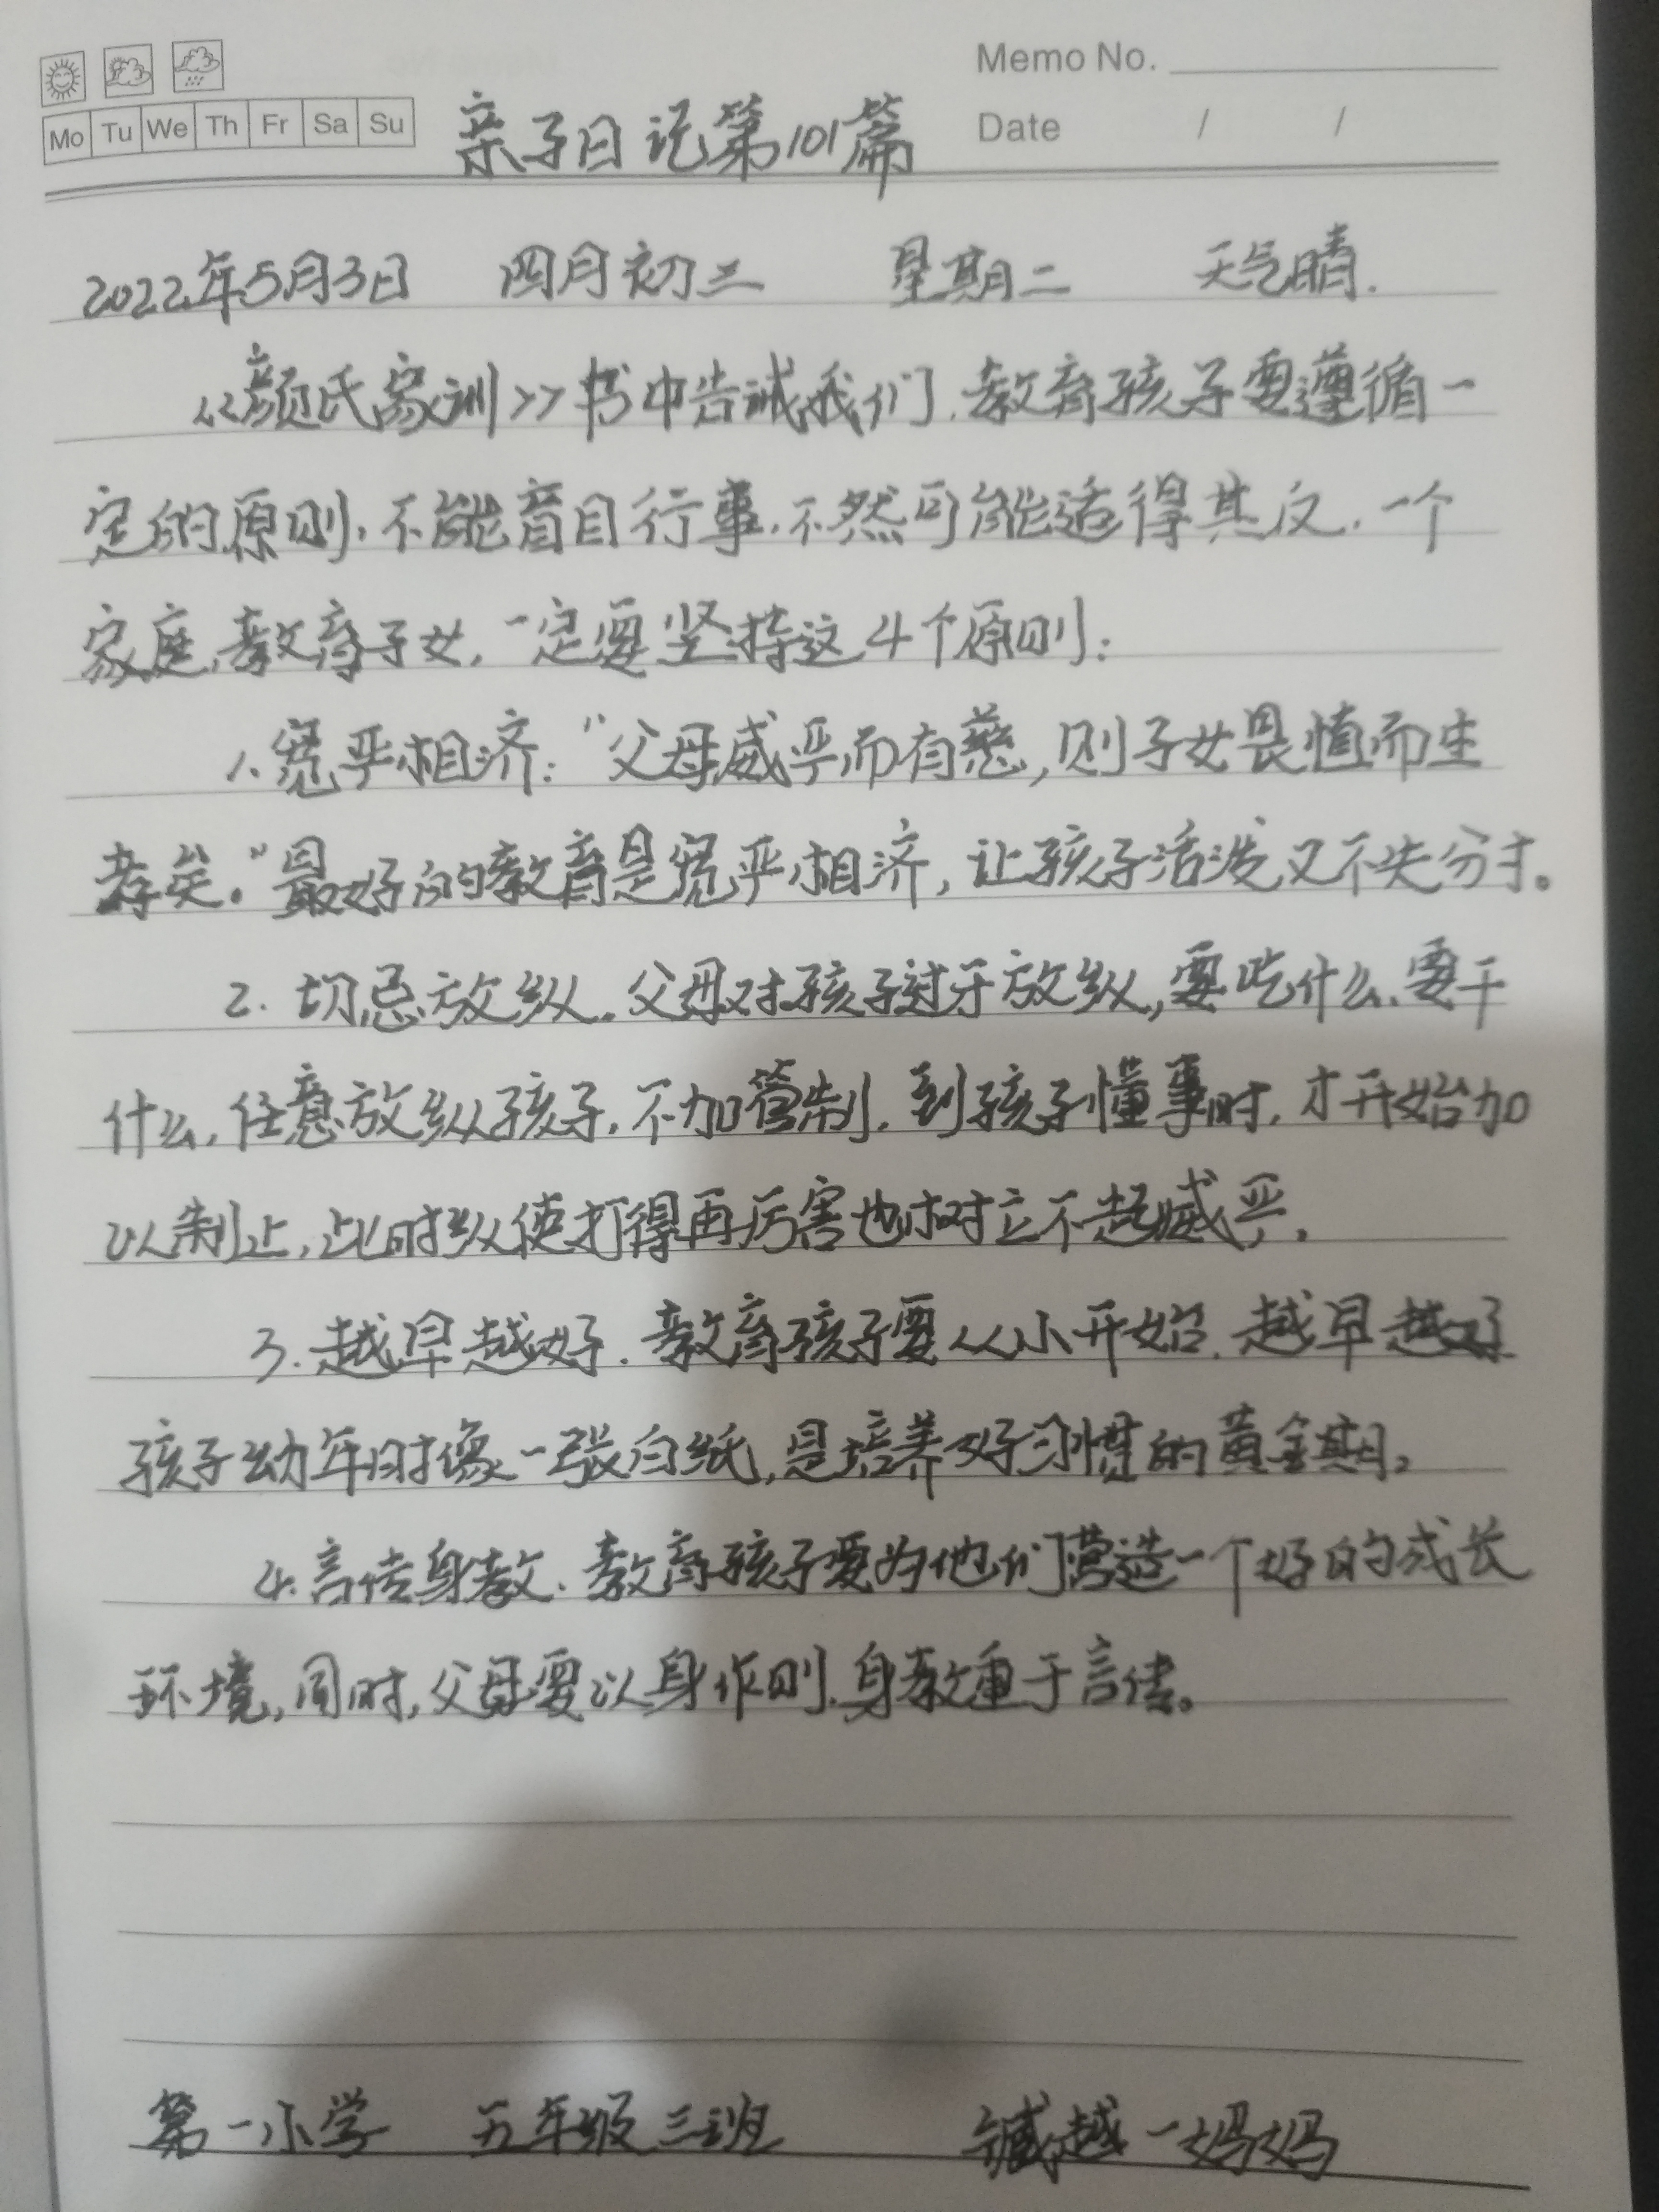 Memo No.
Mo Tu We Th Fr Sa Su
Date / /
亲子日记第101篇
2022年5月3日 四月初三 星期二 天气晴.
<<颜氏家训>>书中告诫我们.教育孩子要遵循一
定的原则,不能盲目行事.不然可能适得其反.一个
家庭,教育子女,一定要坚持这4个原则:
1.宽严相济:"父母威严而有慈,则子女畏慎而生
孝矣."最好的教育是宽严相济,让孩子活泼又不失分寸。
2.切忌放纵.父母对孩子过于放纵,要吃什么.要干
什么,任意放纵孩子,不加管制.到孩子懂事时,才开始加
以制止,此时纵使打得再厉害也树立不起威严.
3.越早越好.教育孩子要从小开始.越早越好
孩子幼年时像一张白纸,是培养好习惯的黄金期。
4.言传身教.教育孩子要为他们营造一个好的成长
环境,同时,父母要以身作则.身教重于言传。
第一小学 五年级三班 越一妈妈